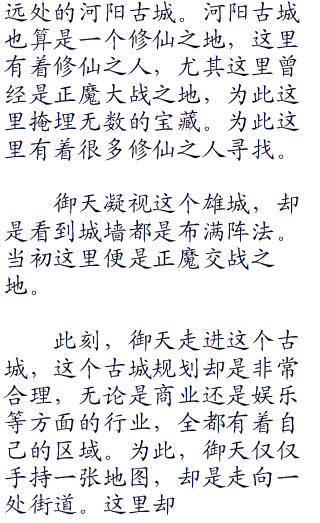 远处的河阳古城。河阳古城
也算是一个修仙之地，这里
有着修仙之人，尤其这里曾
经是正魔大战之地，为此这
里掩埋无数的宝藏。为此这
里有着很多修仙之人寻找。
御天凝视这个雄城，却
是看到城墙都是布满阵法。
当初这里便是正魔交战之
地。
此刻，御天走进这个古
城，这个古城规划却是非常
合理，无论是商业还是娱乐
等方面的行业，全都有着自
己的区域。为此，御天仅仅
手持一张地图，却是走向一
处街道。这里却